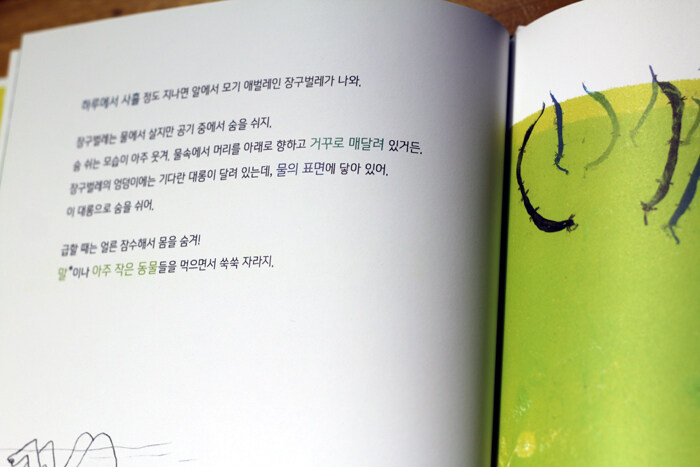 하루에서 사흘 정도 지나면 알에서 모기 애벌레인 장구벌레가 나와.
장구벌레는 물에서 살지만 공기 중에서 숨을 쉬지.
숨 쉬는 모습이 아주 웃겨. 물속에서 머리를 아래로 향하고 거꾸로 매달려 있거든.
장구벌레의 엉덩이에는 기다란 대롱이 달려 있는데, 물의 표면에 닿아 있어.
이 대롱으로 숨을 쉬어.
급할 때는 얼른 잠수해서 몸을 숨겨!
말*이나 아주 작은 동물들을 먹으면서 쑥쑥 자라지.